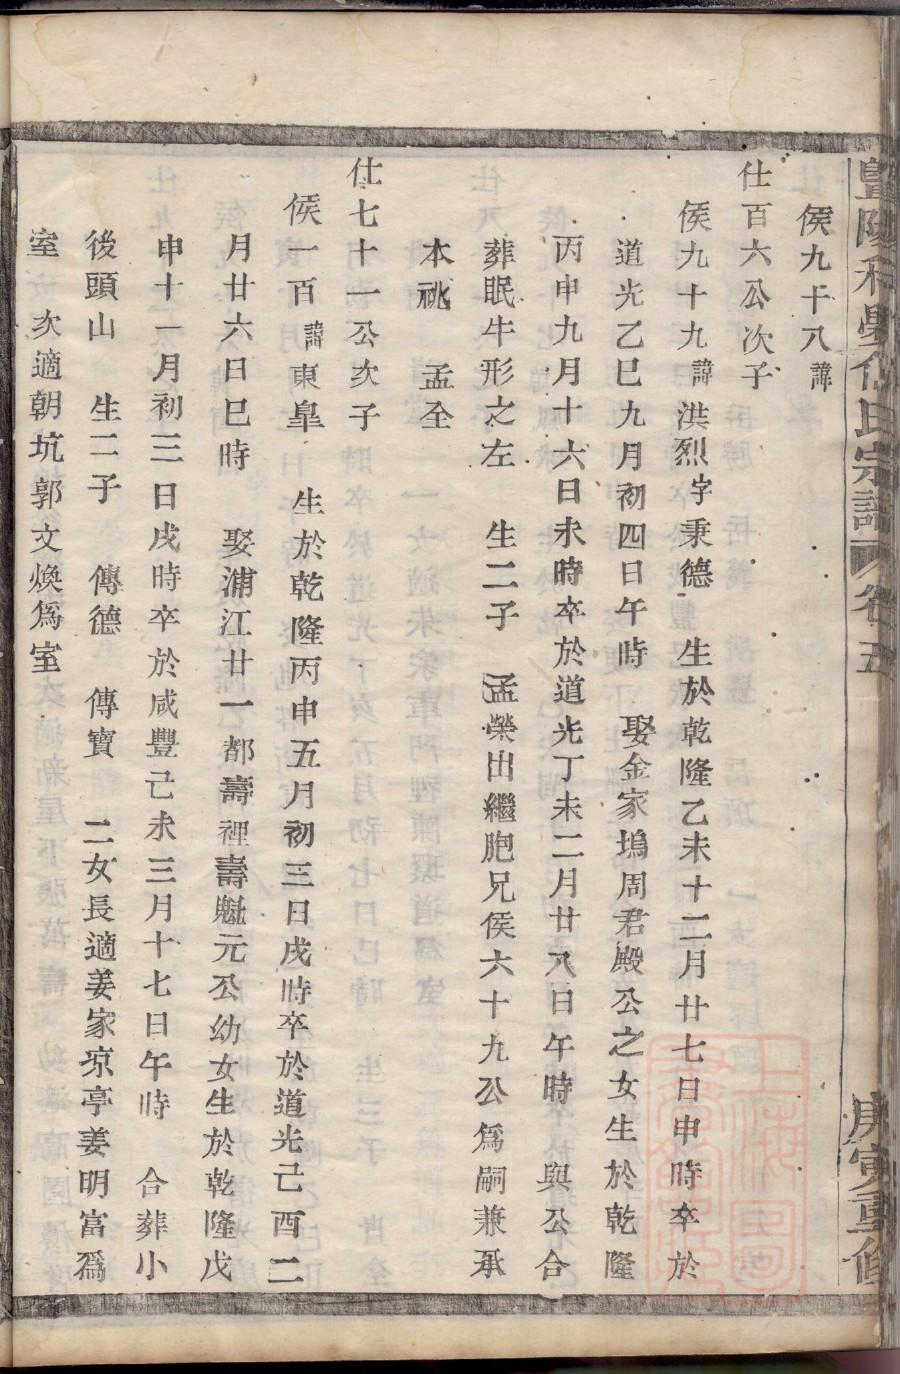 暨陽
氏宗譜 卷五
庚寅重修
侯九十八諱
仕百六公次子
侯九十九諱洪烈字秉德 生於乾隆乙未十二月廿七日申時卒於
道光乙巳九月初四日午時 娶金家塢周君殿公之女生於乾隆
丙申九月十六日未時卒於道光丁未二月廿八日午時 與公合
葬眠牛形之左 生二子 孟榮出繼胞兄侯六十九公為嗣兼承
本祧 孟全
仕七十一公次子
侯一百諱東臯 生於乾隆丙申五月初三日戌時卒於道光己酉二
月廿六日巳時 娶浦江廿一都壽裡壽魁元公幼女生於乾隆戊
申十一月初三日戌時卒於咸豐己未三月十七日午時 合葬小
後頭山 生二子 傳德 傳寶 二女長適姜家凉亭姜明富為
室 次適朝坑郭文煥為室